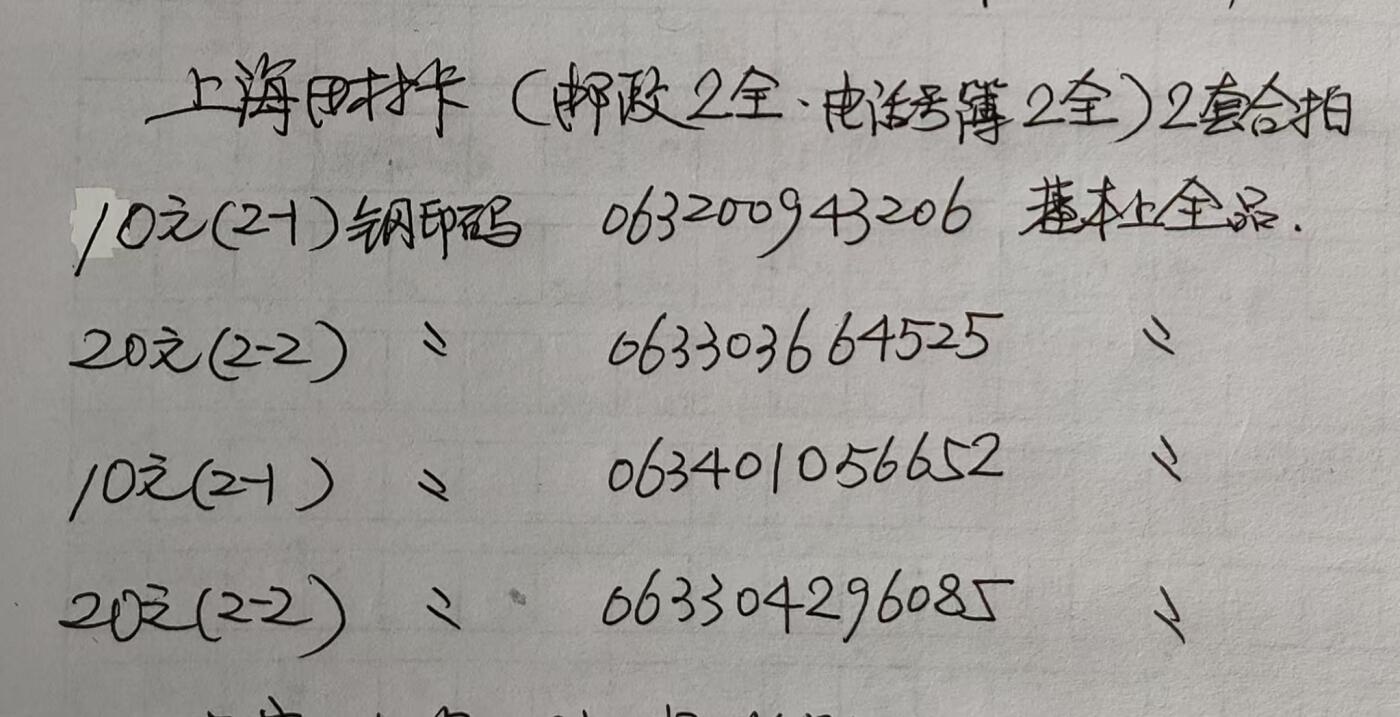 上海田村卡（邮政2全·电话号簿2全）2套合拍
10元(2-1)钢印码 063200943206 基本上全品.
20元(2-2) 〃 063303664525 〃
10元(2-1) 〃 063401056652 〃
20元(2-2) 〃 063304296085 〃